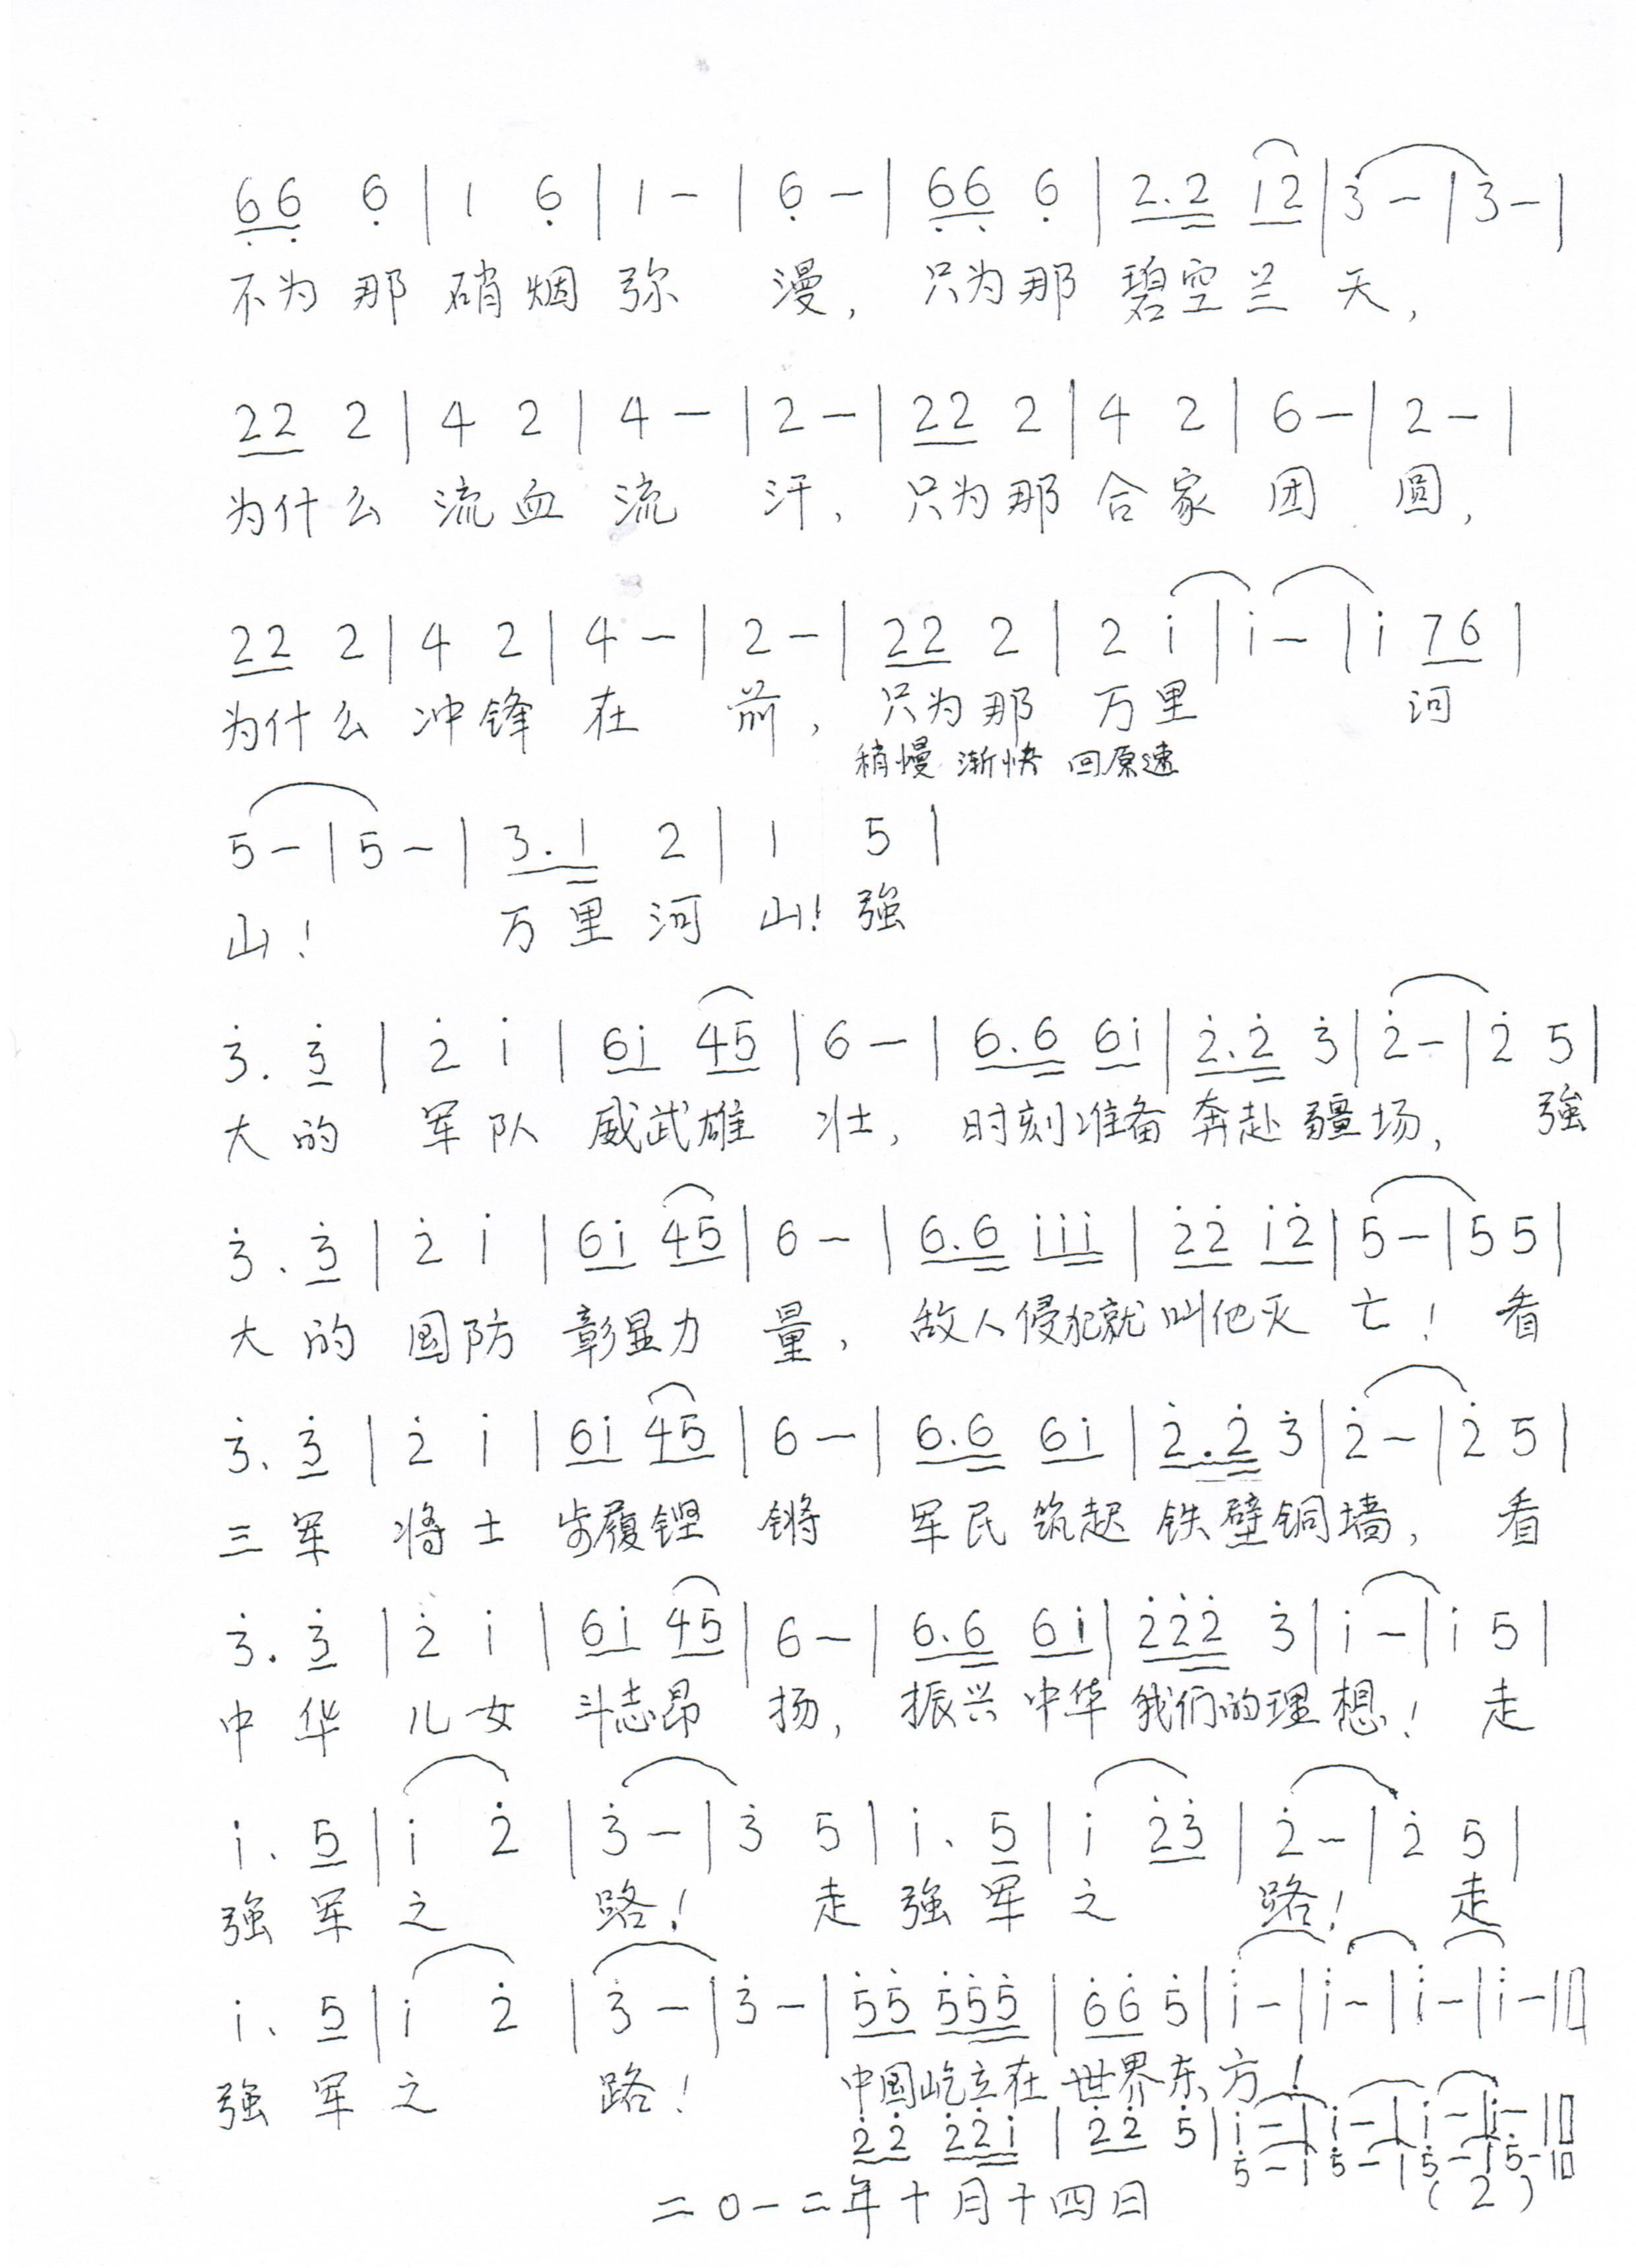 6̣6̣ 6̣ | 1 6̣ | 1 — | 6̣ — | 6̣6̣ 6̣ | 2.2 12 | 3 — | 3 — |
不为 那 硝 烟 弥 漫， 只为那 碧空兰 天，
22 2 | 4 2 | 4 — | 2 — | 22 2 | 4 2 | 6 — | 2 — |
为什么 流血 流 汗， 只为那 合家 团 圆，
22 2 | 4 2 | 4 — | 2 — | 22 2 | 2 i | i — | i 76 |
为什么 冲锋 在 前， 只为那 万里 河
稍慢 渐快 回原速
5 — | 5 — | 3.1 2 | 1 5 |
山！ 万里 河 山！ 強
3̇. 3̇ | 2̇ i | 6i 45 | 6 — | 6.6 6i | 2̇.2̇ 3̇ | 2̇ — | 2̇ 5 |
大 的 军 队 威武雄 壮， 时刻准备 奔赴 疆场， 強
3̇. 3̇ | 2̇ i | 6i 45 | 6 — | 6.6 iii | 2̇2̇ i2̇ | 5 — | 5 5 |
大 的 国防 彰显力 量， 敌人侵犯就 叫他灭 亡！ 看
3̇. 3̇ | 2̇ i | 6i 45 | 6 — | 6.6 6i | 2̇.2̇ 3̇ | 2̇ — | 2̇ 5 |
三 军 将 士 步履铿 锵 军民 筑起 铁壁铜墙， 看
3̇. 3̇ | 2̇ i | 6i 45 | 6 — | 6.6 6i | 2̇2̇2̇ 3̇ | i — | i 5 |
中 华 儿 女 斗志昂 扬， 振兴 中华 我们的理 想！ 走
i. 5 | i 2̇ | 3̇ — | 3̇ 5 | i. 5 | i 2̇3̇ | 2̇ — | 2̇ 5 |
強 军 之 路！ 走 強 军 之 路！ 走
i. 5 | i 2̇ | 3̇ — | 3̇ — | 5̇5̇ 5̇5̇5̇ | 6̇6̇ 5̇ | i — | i — | i — | i — ||
強 军 之 路！ 中国屹立在 世界东 方！
2̇2̇ 2̇2̇i | 2̇2̇ 5̇ | i — | i — | i — | i — ||
5̇ — | 5̇ — | 5̇ — | 5̇ — ||
二〇一二年十月十四日 (2)